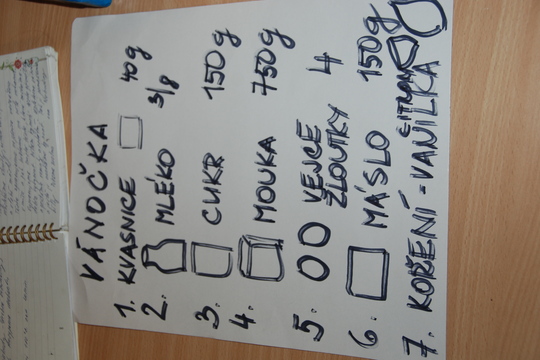 VÁNOČKA
1. KVASNICE 40g
2. MLÉKO 3/8
3. CUKR 150g
4. MOUKA 750g
5. VEJCE
ŽLOUTKY 4
6. MÁSLO 150g
CITRON
7. KOŘENÍ - VANILKA